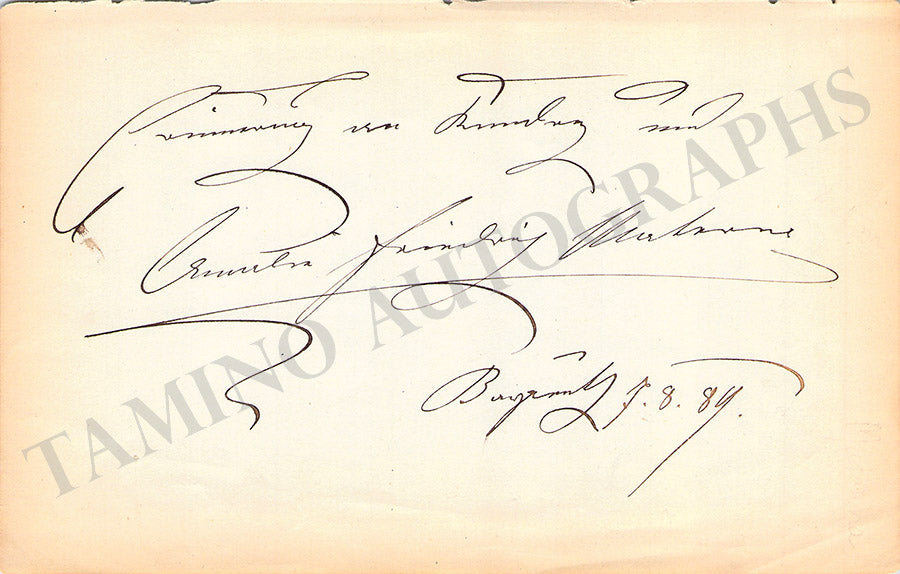 Erinnerung an Kundry und
Amalie Friedrich Materna
Bayreuth 7.8.89.
TAMINO AUTOGRAPHS